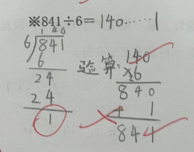 ※841÷6=140……1
140
6)841
6
24
24
1
验算
140
×6
840
1
844